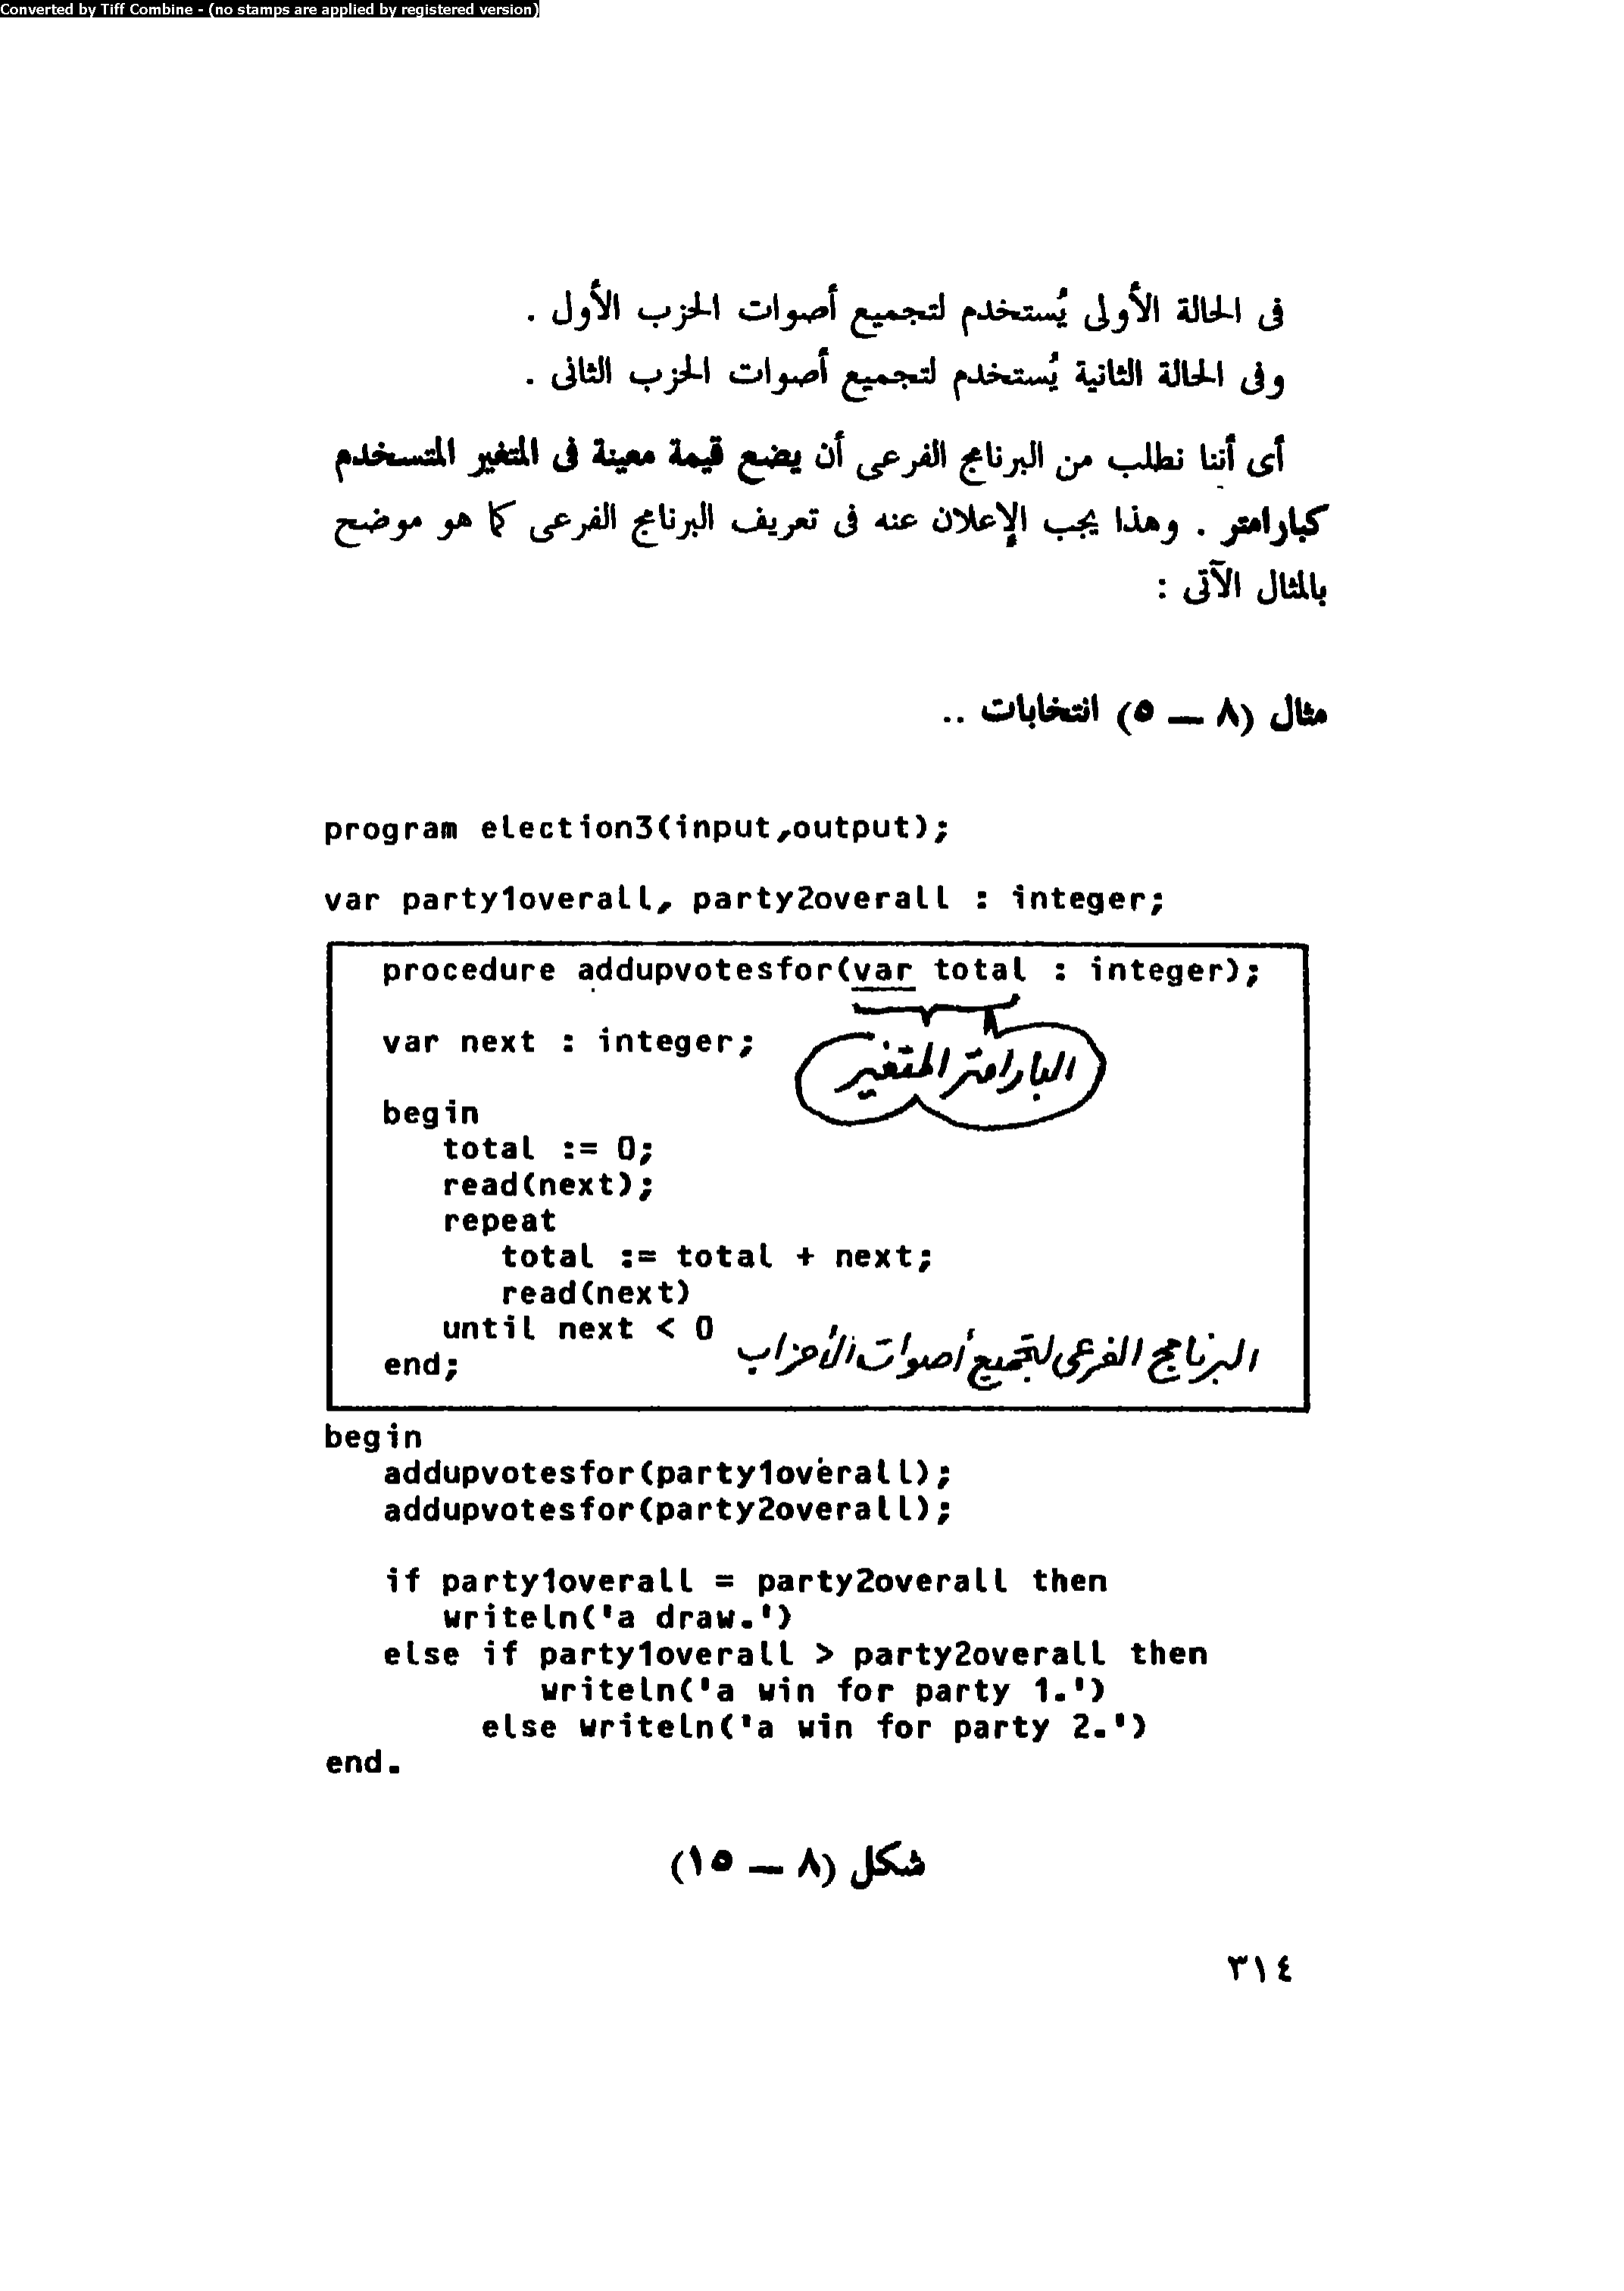 Converted by Tiff Combine - (no stamps are applied by registered version)
فى الحالة الأولى يُستخدم لتجميع أصوات الحزب الأول .
وفى الحالة الثانية يُستخدم لتجميع أصوات الحزب الثانى .
أى أننا نطلب من البرنامج الفرعى أن يضع قيمة معينة فى المتغير المتسخدم
كبارامتر . وهذا يجب الإعلان عنه فى تعريف البرنامج الفرعى كما هو موضح
بالمثال الآتى :
مثال (٨ — ٥) انتخابات ..
program election3(input,output);
var party1overall, party2overall : integer;
procedure addupvotesfor(var total : integer);
var next : integer;
البارامتر المتغير
begin
total := 0;
read(next);
repeat
total := total + next;
read(next)
until next < 0
البرنامج الفرعى لتجميع أصوات الأحزاب
end;
begin
addupvotesfor(party1overall);
addupvotesfor(party2overall);
if party1overall = party2overall then
writeln('a draw.')
else if party1overall > party2overall then
writeln('a win for party 1.')
else writeln('a win for party 2.')
end.
شكل (٨ — ١٥)
٣١٤